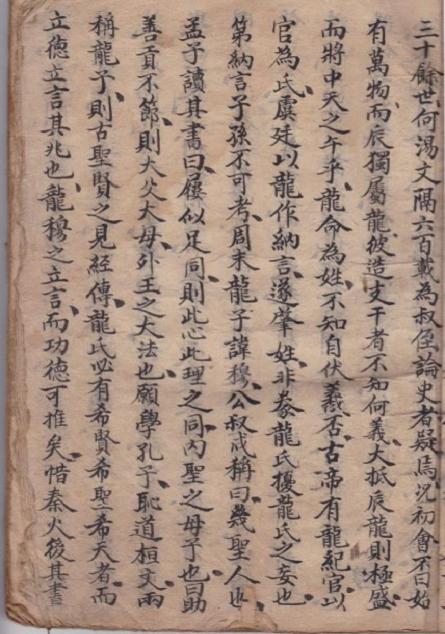 三十餘世何湯文隔六百載為叔侄論史者疑焉況初會不曰始
有萬物而辰獨屬龍彼造支干者不知何義大抵辰龍則極盛
而將中天之午乎龍命為姓不知自伏羲否古帝有龍紀官以
官為氏虞廷以龍作納言遂肇姓非豢龍氏擾龍氏之妄也
第納言子孫不可考周末龍子諱穆公叔戌稱曰幾聖人也
孟子讀其書曰屨似足同則此心此理之同內聖之母子也曰助
善貢不節則大父大母外王之大法也願學孔子恥道桓文兩
稱龍子則古聖賢之見經傳龍氏必有希賢希聖希天者而
立德立言其兆也龍穆之立言而功德可推矣惜秦火後其書